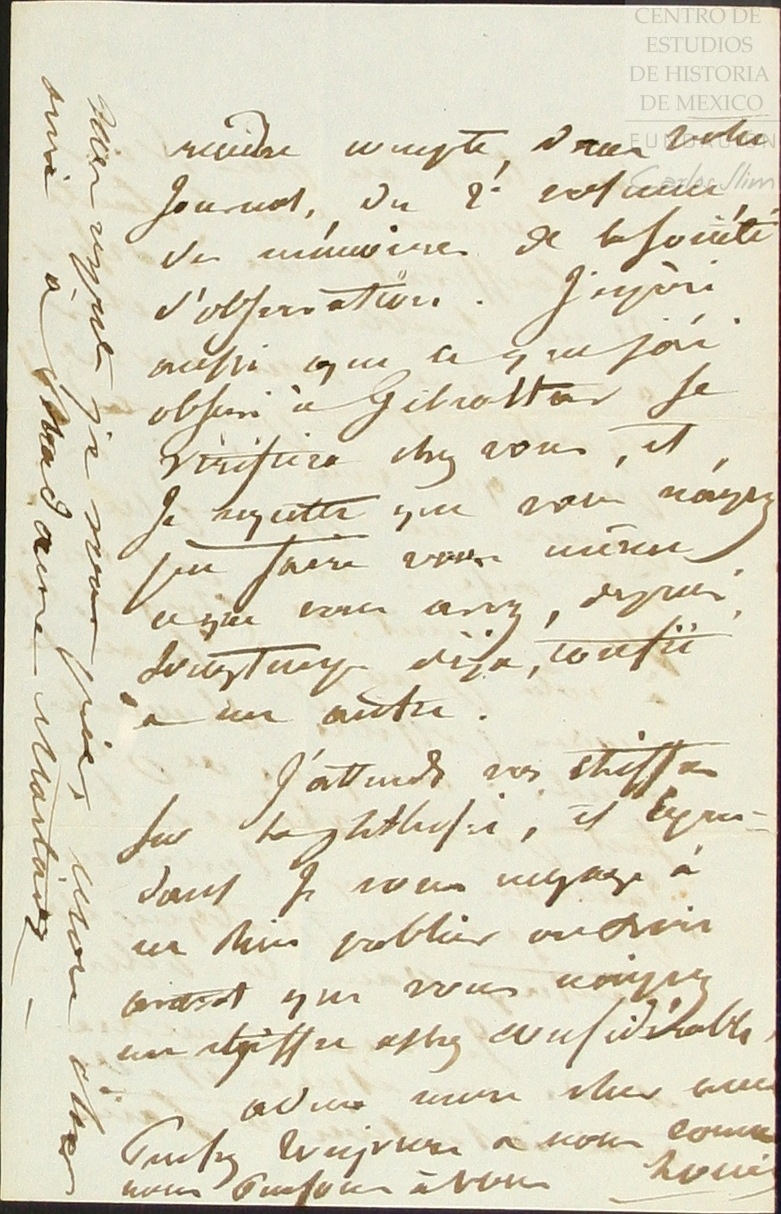 CENTRO DE
ESTUDIOS
DE HISTORIA
DE MEXICO
FUNDACIÓN
Carlos Slim
rendre compte, dans votre
Journal, du 2e volume
des mémoires de la société
d'observation. J'espère
aussi que ce que j'ai
observé à Gibraltar se
vérifiera chez vous, et
je regrette que vous n'ayez
pu faire vous même
ce que vous avez, depuis
longtemps déjà, confié
à un autre.
J'attends vos chiffres
sur la phthisie, et cepen-
dant je vous engage à
ne rien publier
avant que vous n'ayez
un chiffre assez considérable,
adieu mon cher ami
Pensez toujours à nous comme
nous pensons à vous Louis
Mes respects je vous prie, mon cher
ami à Madame Martinez